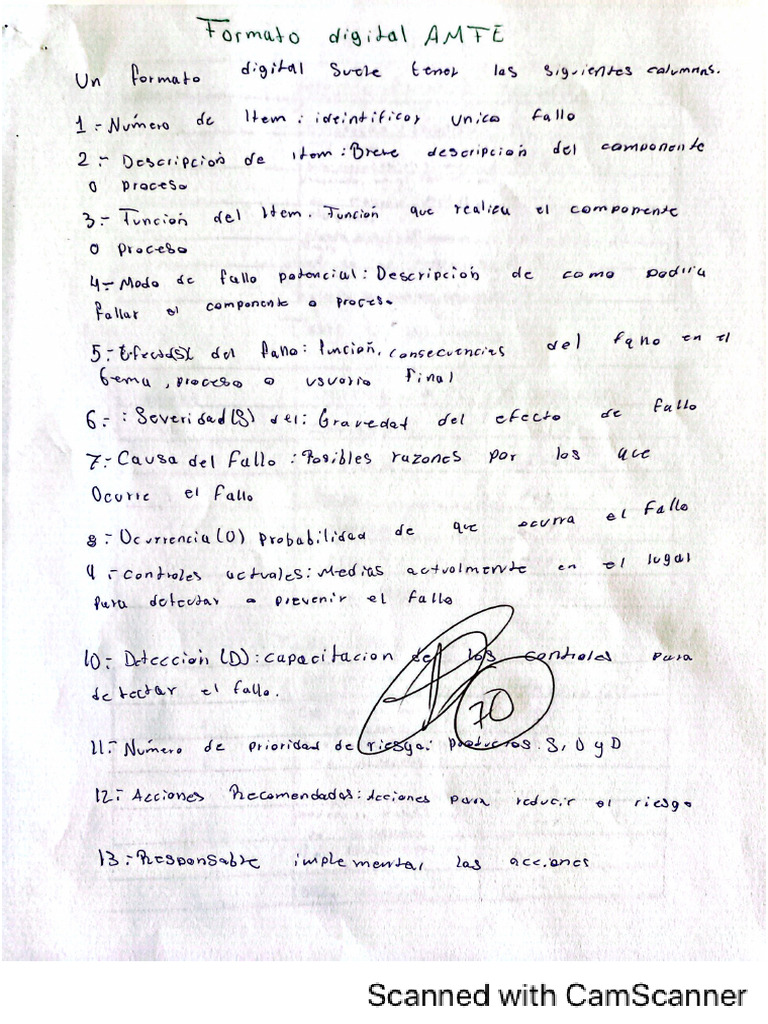 Formato digital AMFE
Un formato digital Suele tener las siguientes columnas.
1.- Número de Item : ideintificar unico fallo
2.- Descripción de item : Breve descripción del componente
o proceso
3.- Función del Item. Función que realiza el componente
o proceso
4.- Modo de fallo potencial : Descripción de como podiria
fallar el componente o proceso
5.- Efecto(s) del fallo : función, consecuencias del fallo en el
tema , proceso o usuario final
6.- : Severidad (S) del : Gravedad del efecto de fallo
7.- Causa del fallo : Posibles razones por los que
Ocurre el fallo
8.- Ocurrencia (O) Probabilidad de que ocurra el fallo
9.- Controles actuales : Medias actualmente en el lugar
para detectar o prevenir el fallo
10.- Detección (D) : capacitacion de los controles para
detectar el fallo.
70
11.- Número de prioridad de riesgo : productos. S, O y D
12.- Acciones Recomendados : Acciones para reducir el riesgo
13.- Responsable implementar las acciones
Scanned with CamScanner